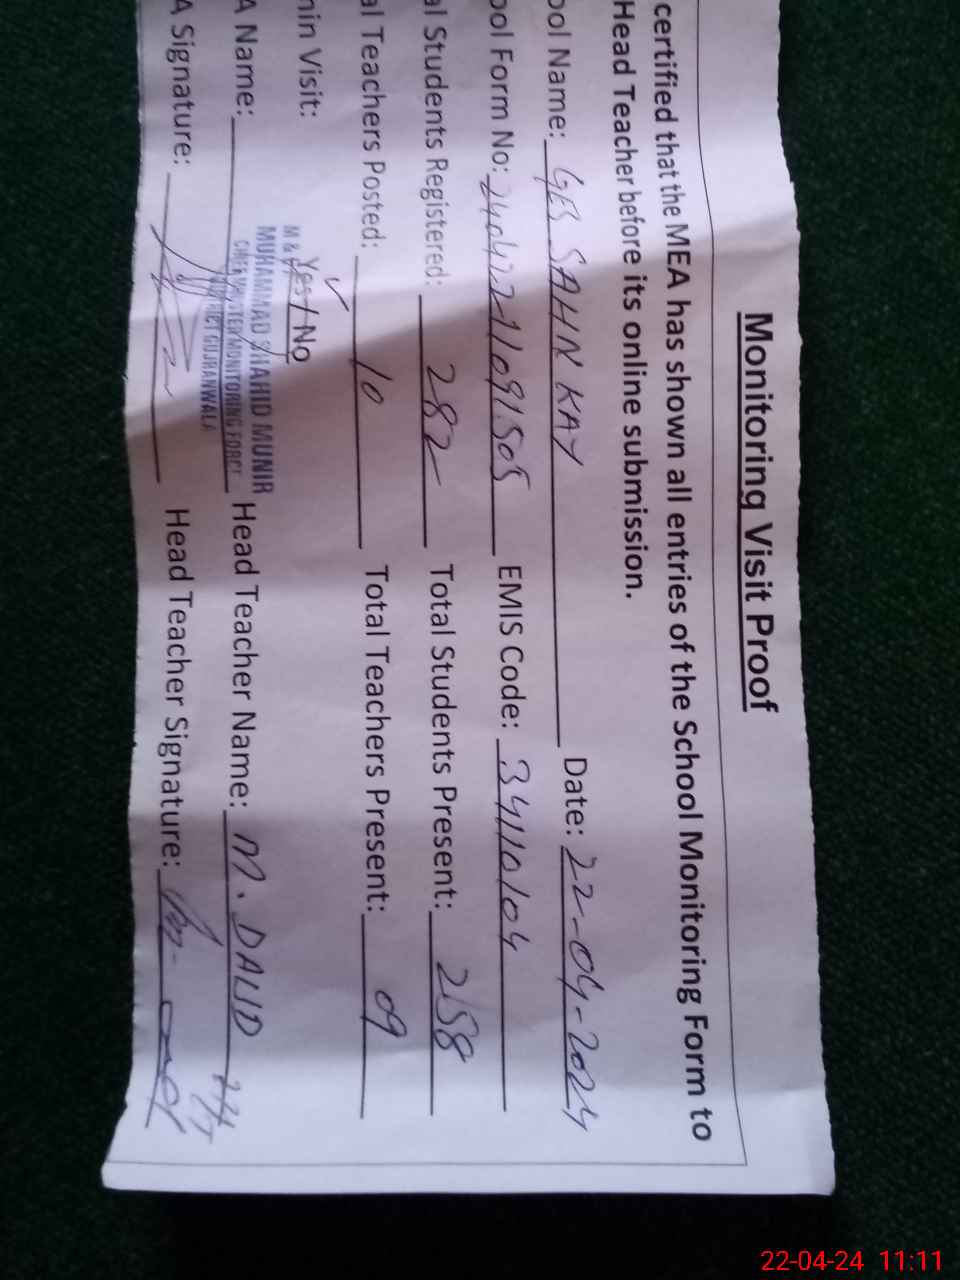 Monitoring Visit Proof
certified that the MEA has shown all entries of the School Monitoring Form to
Head Teacher before its online submission.
ool Name: GES SAHN KAY Date: 22-04-2024
ool Form No: EMIS Code: 34110104
al Students Registered: 282 Total Students Present: 258
al Teachers Posted: 10 Total Teachers Present: 09
min Visit: Yes / No
M &
A Name: MUHAMMAD SHAHID MUNIR Head Teacher Name: M. DAUD
CHIEF MINISTER MONITORING FORCE
DISTRICT GUJRANWALA
A Signature: Head Teacher Signature:
22-04-24 11:11